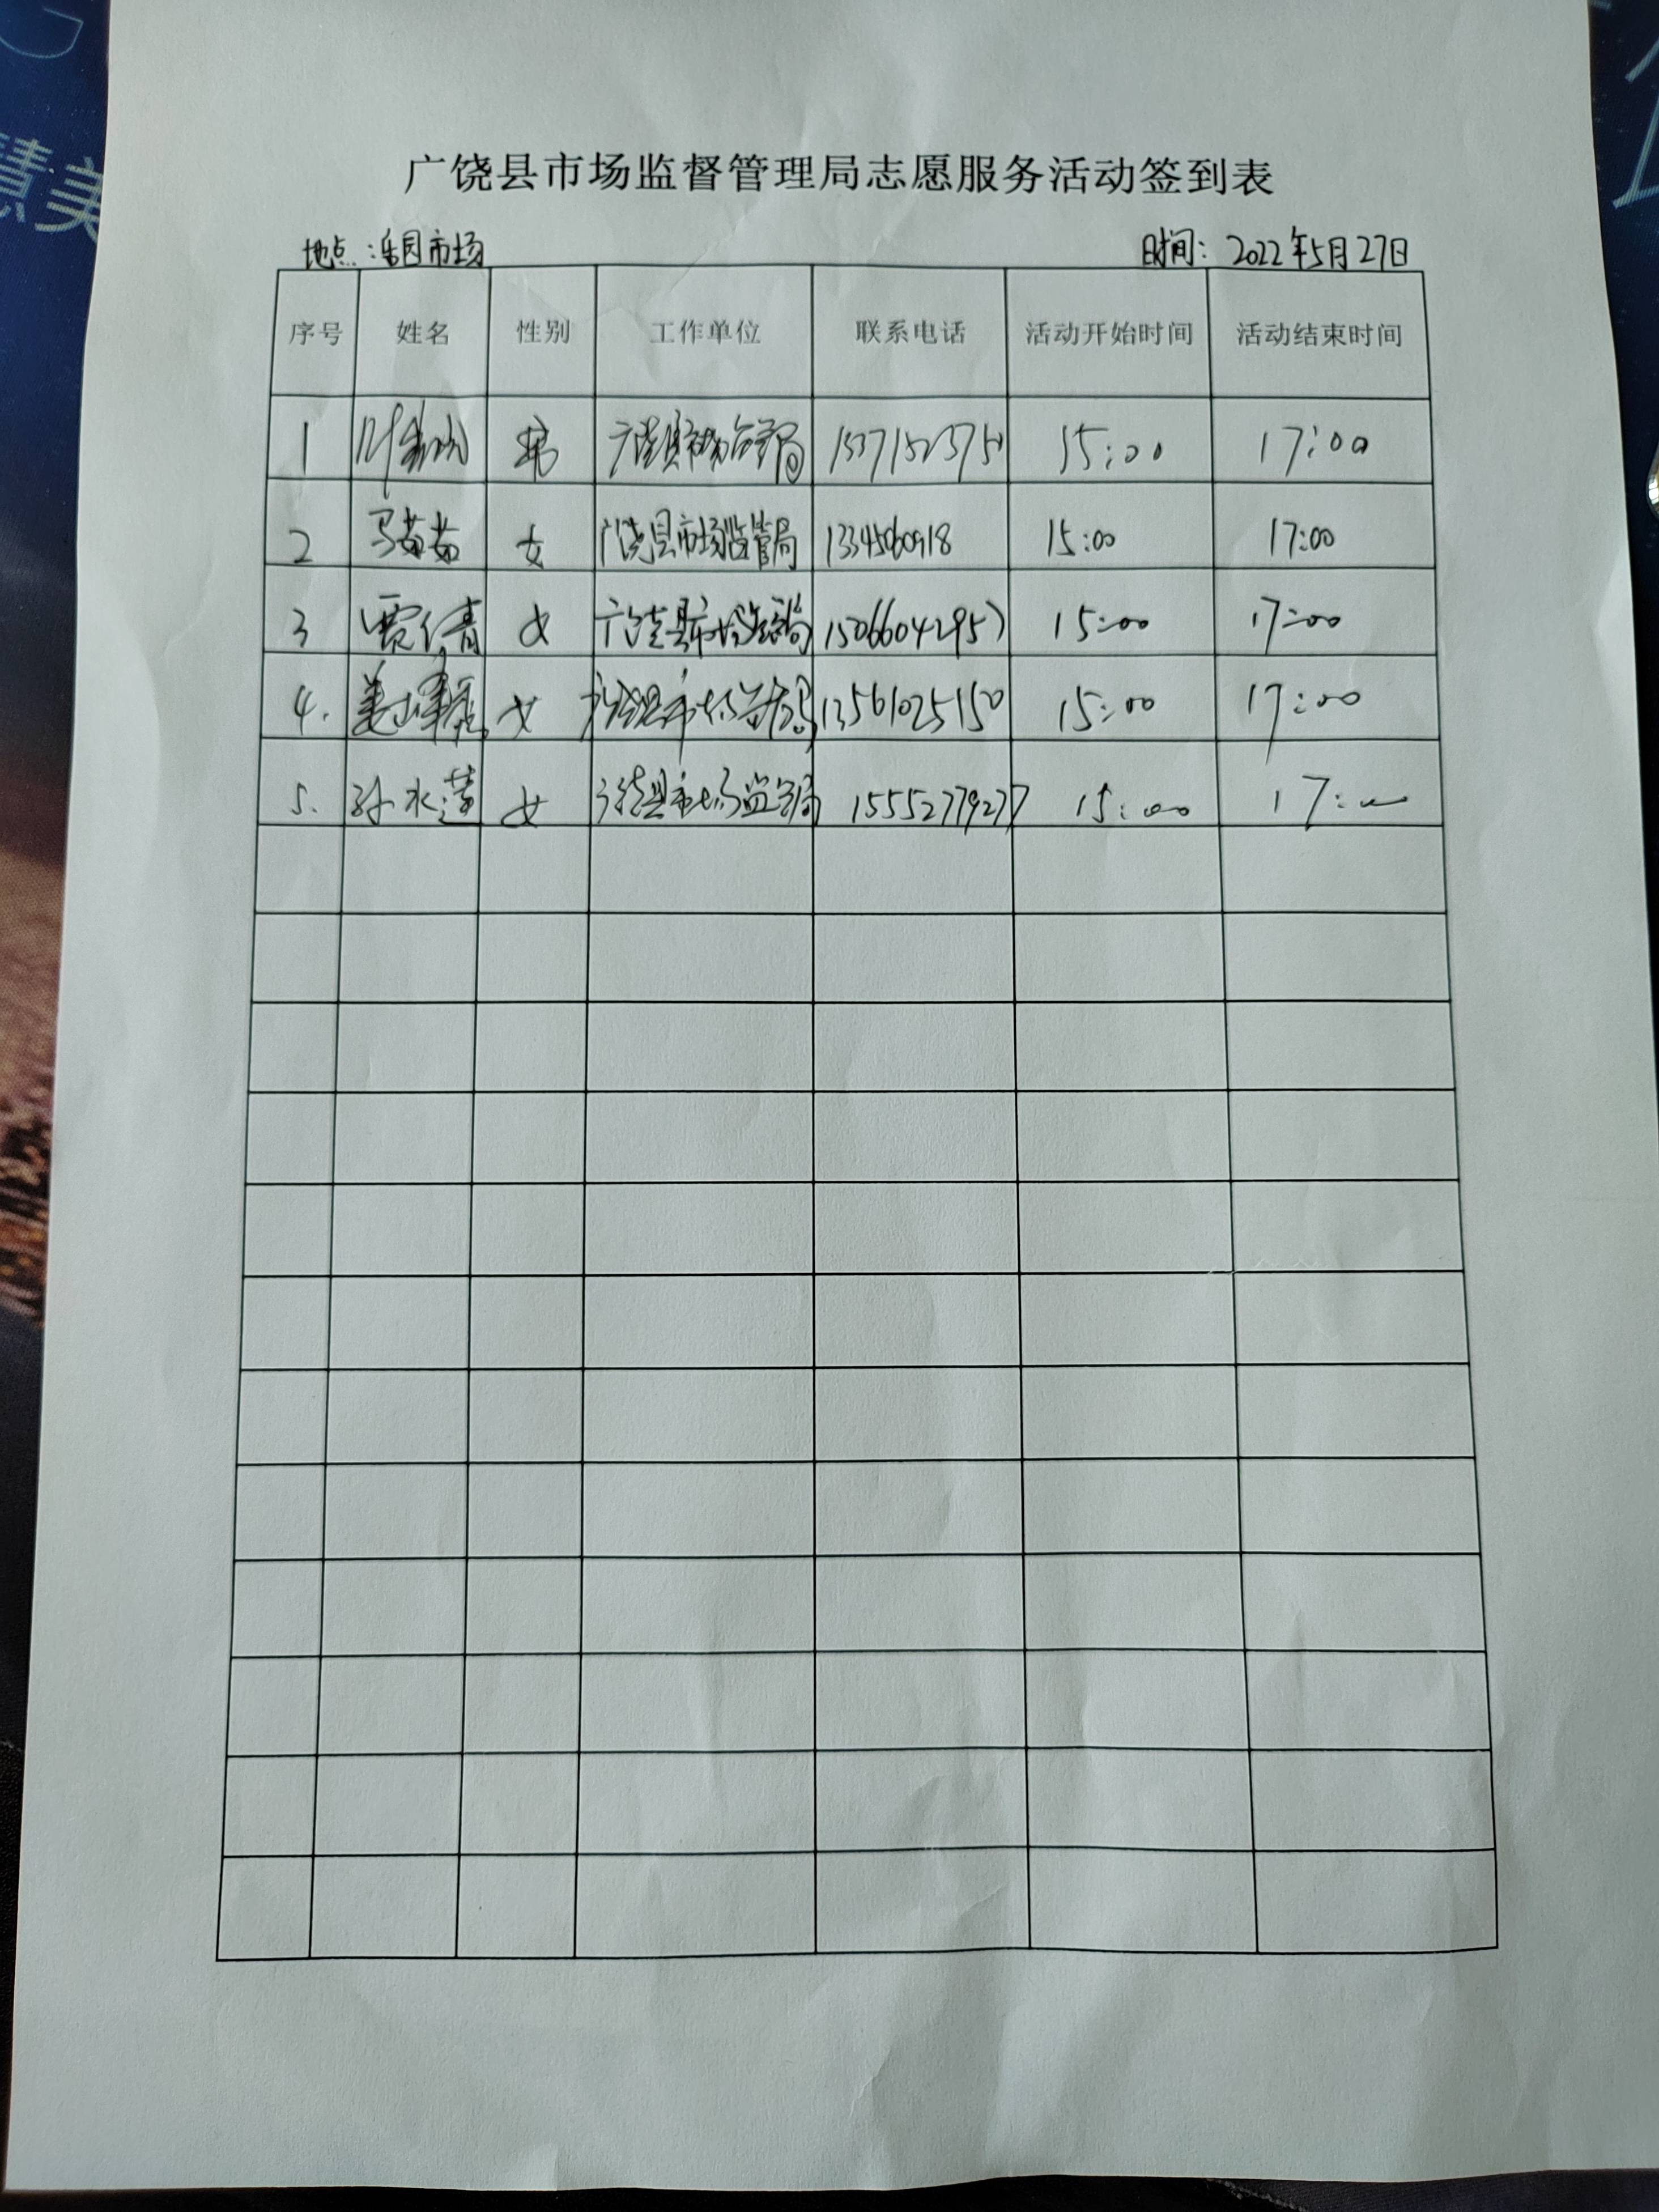 慧美
广饶县市场监督管理局志愿服务活动签到表
地点:乐园市场 时间: 2022年5月27日
序号 姓名 性别 工作单位 联系电话 活动开始时间 活动结束时间
1 男 广饶县市场监管局 15:00 17:00
2 马茹茹 女 广饶县市场监管局 15:00 17:00
3 贾倩 女 广饶县市场监管局 15066042957 15:00 17:00
4. 姜 女 广饶县市场监管局 13561025150 15:00 17:00
5. 孙水莲 女 广饶县市场监管局 15552779277 15:00 17:00